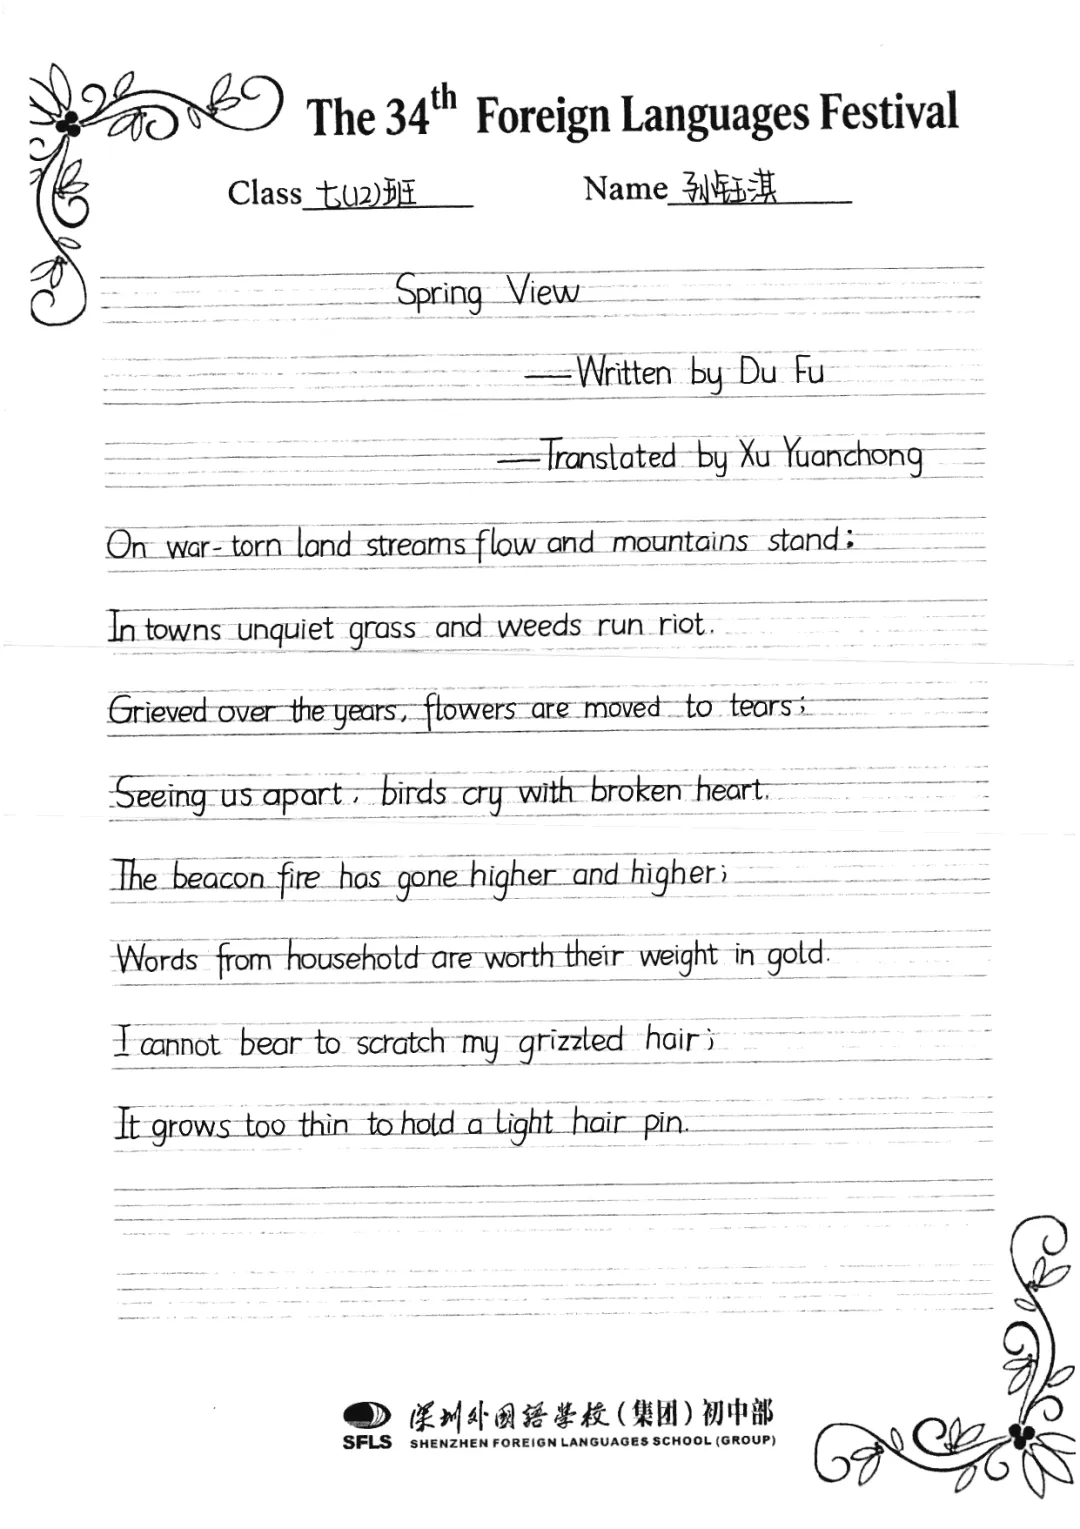 The 34th Foreign Languages Festival
Class 七(12)班 Name 孙钰淇
Spring View
——Written by Du Fu
——Translated by Xu Yuanchong
On war-torn land streams flow and mountains stand;
In towns unquiet grass and weeds run riot.
Grieved over the years, flowers are moved to tears;
Seeing us apart, birds cry with broken heart.
The beacon fire has gone higher and higher;
Words from household are worth their weight in gold.
I cannot bear to scratch my grizzled hair;
It grows too thin to hold a light hair pin.
深圳外国语学校(集团)初中部
SFLS SHENZHEN FOREIGN LANGUAGES SCHOOL (GROUP)